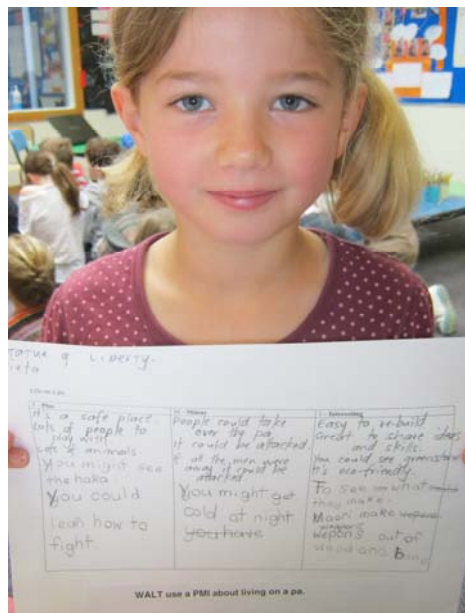 Liberty.
P - Plus
It's a safe place
Lots of people to
play with.
Lots of animals
You might see
the haka
You could
lean how to
fight.
M - Minus
People could take
over the pa.
It could be attacked.
If all the men were
away it could be
attacked
You might get
cold at night
you have
I - Interesting
Easy to re-build
Great to share ideas
and skills.
You could see
It's eco-friendly.
To see what
they make.
Maori make
weapons
wepons out of
wood and
WALT use a PMI about living on a pa.